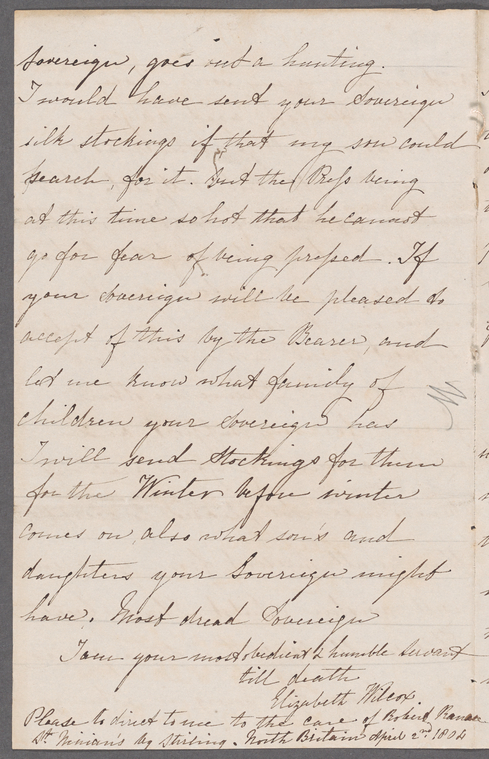 Sovereign, goes out a hunting.
I would have sent your Sovereign
silk stockings if that my son could
search for it. But the Press being
at this time so hot that he cannot
go for fear of being pressed. If
your Sovereign will be pleased to
accept of this by the Bearer, and
let me know what family of
children your Sovereign has
I will send Stockings for them
for the Winter before winter
comes on, also what son's and
daughters your Sovereign might
have. Most dread Sovereign
I am your most obedient & humble Servant
till death
Elizabeth Wilcox
Please to direct to me to the care of Robert
St. Ninian's by Stirling. North Britain April 2nd 1804